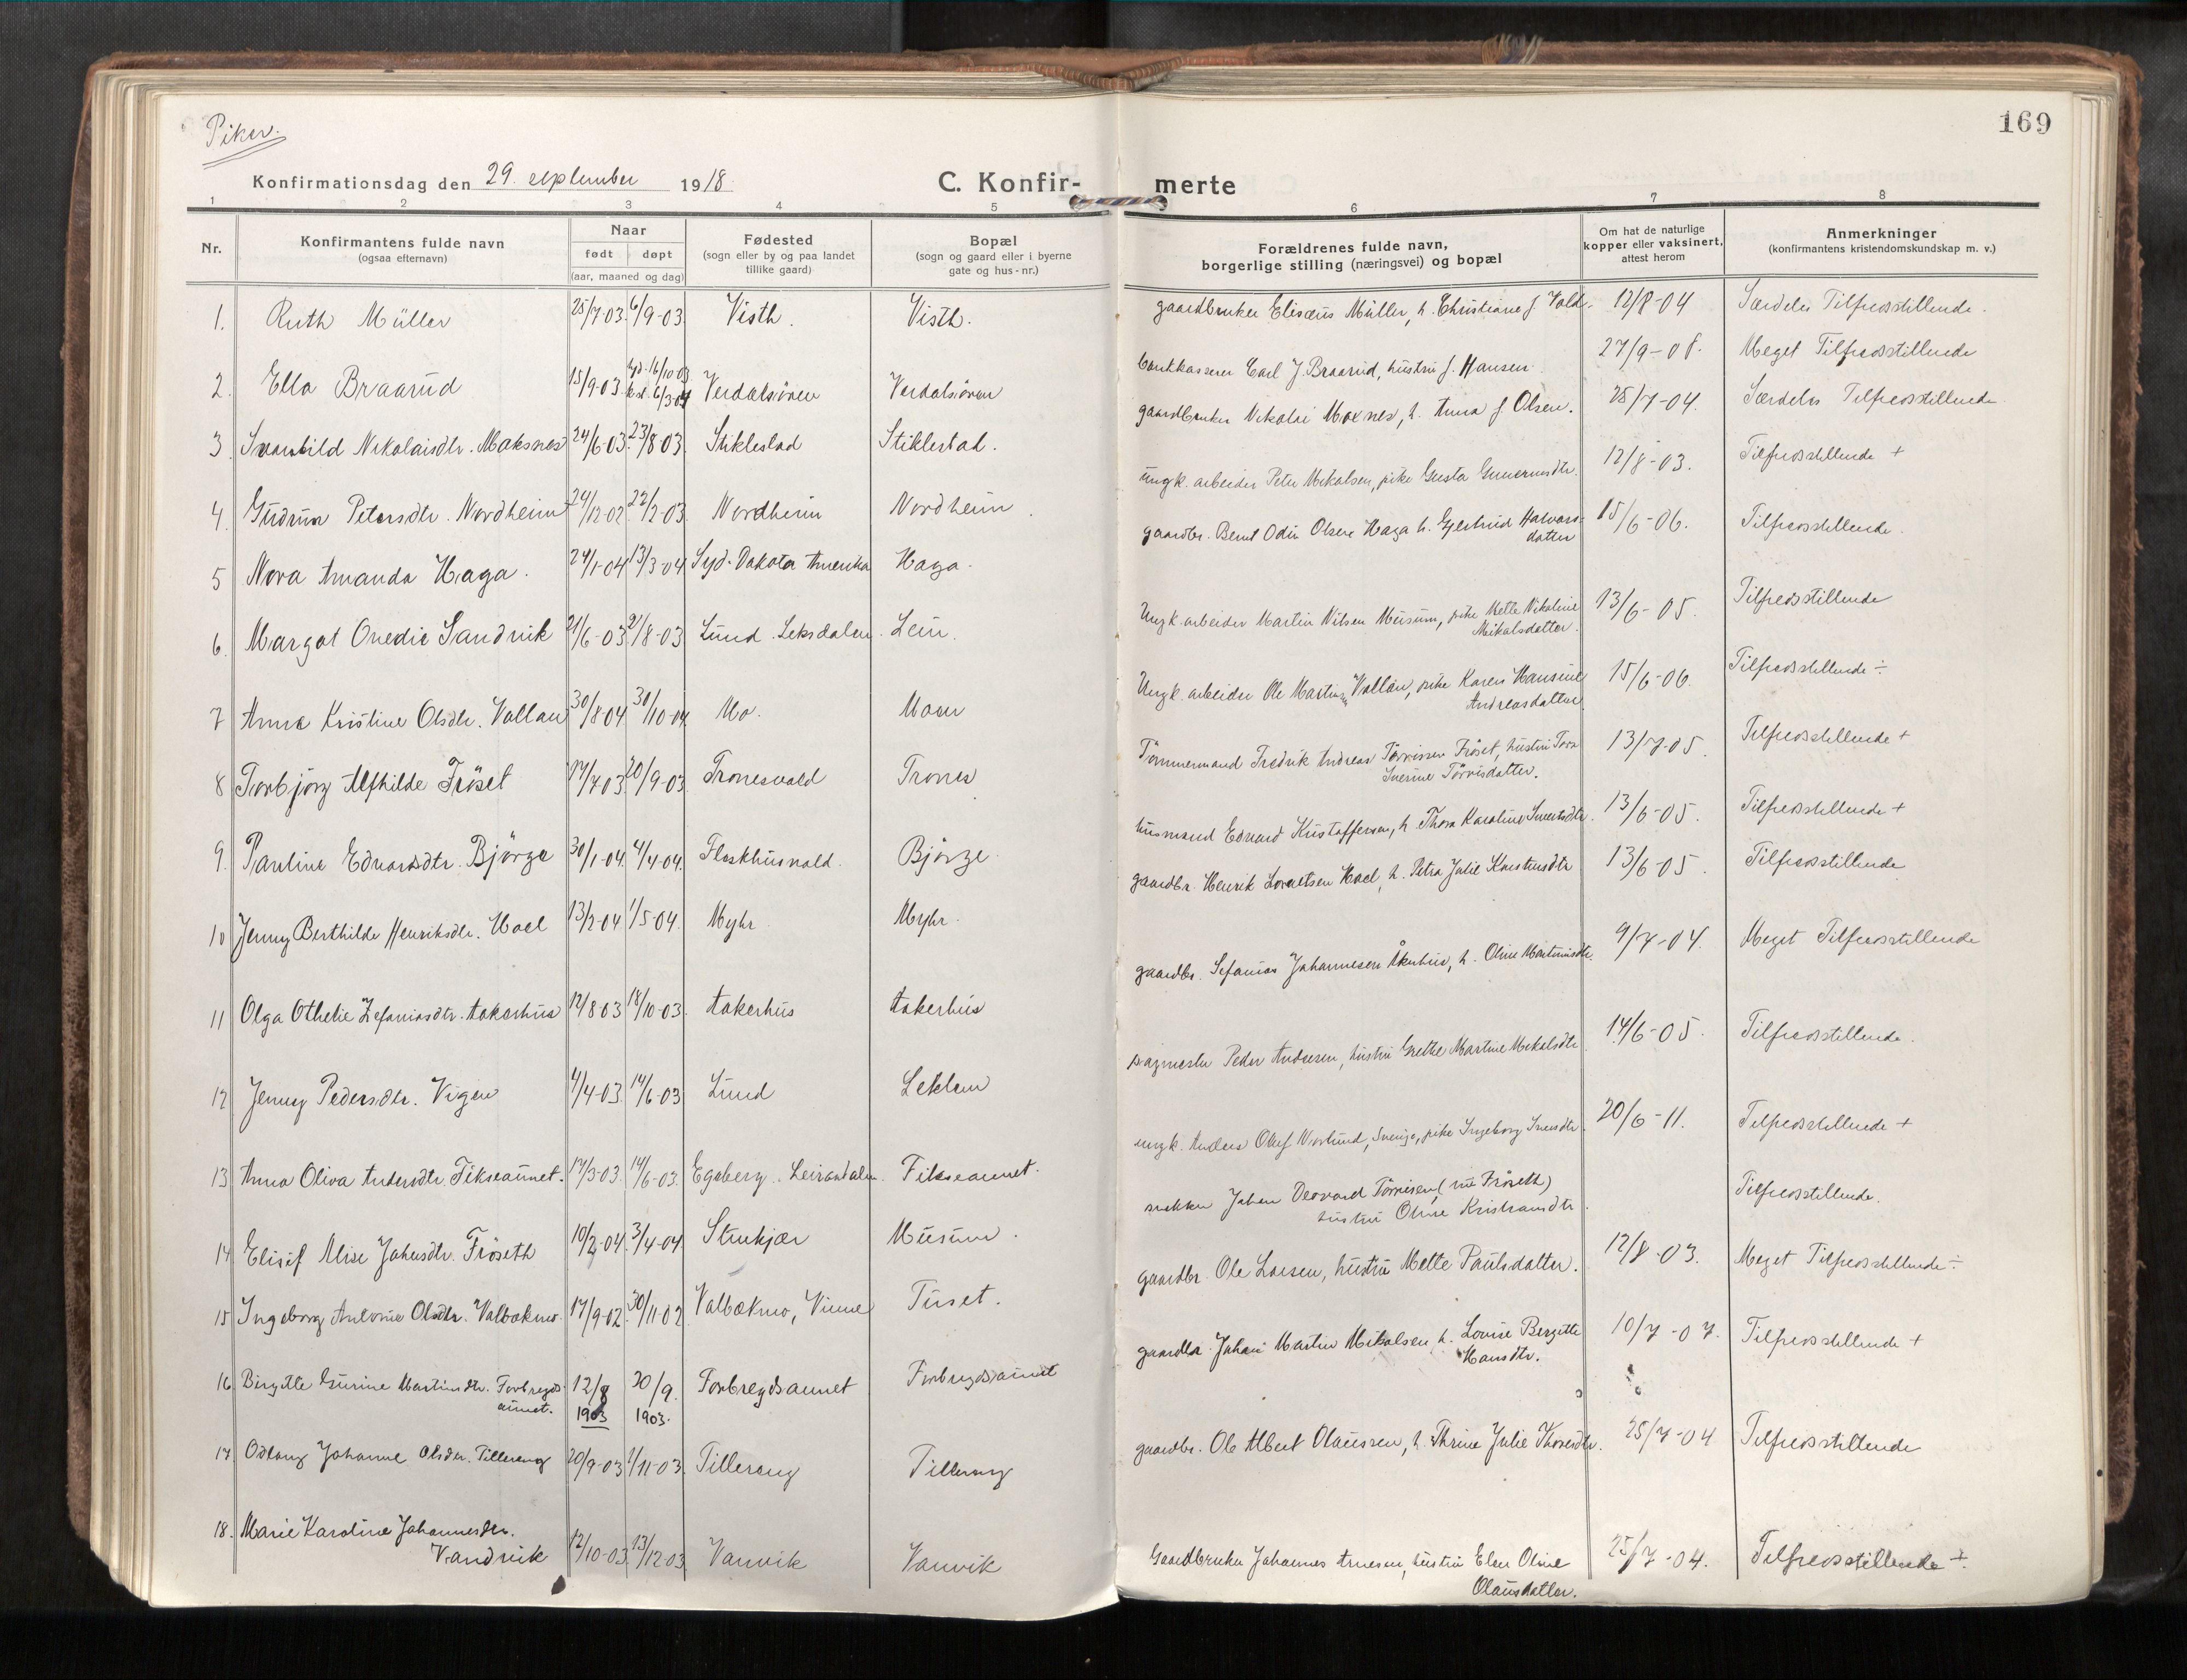 Piker.
169
Konfirmationsdag den 29. september 1918
C. Konfir-
merte
1 2 3 4 5 6 7 8
Nr.
Konfirmantens fulde navn
(ogsaa efternavn)
Naar
født døpt
(aar, maaned og dag)
Fødested
(sogn eller by og paa landet
tillike gaard)
Bopæl
(sogn og gaard eller i byerne
gate og hus-nr.)
Forældrenes fulde navn,
borgerlige stilling (næringsvei) og bopæl
Om hat de naturlige
kopper eller vaksinert,
attest herom
Anmerkninger
(konfirmantens kristendomskundskap m. v.)
1. Ruth Müller 25/7-03. 6/9-03 Visth. Visth. gaardbruker Elisæus Müller, h. Christiane f. Vold. 12/8-04 Særdeles Tilfredsstillende.
2. Ella Braarud 15/9-03 16/10-03 6/3-04 Verdalsören Verdalsören bankkasserer Carl J. Braarud, hustru f. Hansen. 27/9-08. Meget Tilfredsstillende
3. Svanhild Nikolaisdtr. Maksnes 24/6-03. 23/8 03. Stiklestad Stiklestad. gaardbruker Nikolai Moxnes, h. Anna f. Olsen. 28/7-04. Særdeles Tilfredsstillende
4. Gudrun Petersdtr. Nordheim 24/12-02. 22/2-03. Nordheim Nordheim. ungk. arbeider Peter Mikalsen, pike Gusta Gunerusdtr. 12/8-03. Tilfredsstillende +
5 Nora Amanda Haga. 24/1-04 13/3-04 Syd-Dakota Amerika Haga. gaardbr. Bernt Odin Olsen Haga h. Gjertrud Halvors-
datter 15/6-06. Tilfredsstillende.
6. Margot Ovedie Sandvik 21/6-03 2/8-03 Lund. Leksdalen. Lein. Ungk. arbeider Martin Nilsen Musum, pike Mette Nikoline
Mikalsdatter. 13/6-05. Tilfredsstillende
7 Anna Kristine Olsdtr. Vollan 30/8-04 30/10-04. Mo. Moen Ungk. arbeider Ole Martin Vollan, pike Karen Hansine
Andreasdatter 15/6-06. Tilfredsstillende ÷
8 Torbjörg Alfhilde Fröset 17/7-03 20/9-03 Tronesvald Trones Tömmermand Fredrik Andreas Törrissen Fröset, hustru Tora
Sverine Törrisdatter. 13/7-05. Tilfredsstillende +
9. Pauline Edvardsdtr. Björge 30/1-04. 4/4-04. Fleskhusvald. Björge. husmand Edvard Kristoffersen, h. Thora Karoline Sveinsdtr. 13/6-05. Tilfredsstillende +
10 Jenny Berthilde Henriksdtr. Hoel 13/2-04 1/5-04. Myhr Myhr. gaardbr. Henrik Lorentsen Hoel, h. Petra Julie Knutsdtr 13/6-05. Tilfredsstillende
11 Olga Othelie Zefaniasdtr. Aakerhus 12/8 03 18/10-03. Aakerhus Aakerhus gaardbr. Sefanias Johannesen Åkerhus, h. Oline Martinusdtr. 9/7-04. Meget Tilfredsstillende
12 Jenny Pedersdtr. Vigen 4/4-03. 14/6-03 Lund Leklem Peder Andersen, hustru Grethe Martine Mikalsdtr 14/6-05. Tilfredsstillende.
13 Anna Oliva Andersdtr. Fikseaunet. 17/3-03. 14/6-03. Egsberg. Fikseaunet. ungk. Anders Oluf Norlund, Sverige, pike Ingeborg Svensdtr. 20/6-11. Tilfredsstillende +
14 Elisif Alise Johansdtr. Fröseth 10/2-04. 3/4-04. Stenkjær Musum. snekker Johan Deovard Törrisen (nu Fröseth)
hustru Oline Kristiansdtr. Tilfredsstillende.
15 Ingeborg Antonie Olsdtr. Valbækmo. 17/9-02 30/11-02 Valbækmo, Vinne Tuset. gaardbr. Ole Larsen, hustru Mette Paulsdatter. 12/8-03. Meget Tilfredsstillende ÷
16 Birgitte Gurine Martinsdtr. Forbregds-
aunet. 12/8 1903 20/9. 1903. Forbregdsaunet Forbregdsaunet gaardbr. Johan Martin Mikalsen h. Lovise Bergitte
Hansdtr. 10/7-07. Tilfredsstillende +
17 Oddlaug Johanne Olsdtr. Tillereng 20/9-03 1/11-03. Tillereng Tillereng gaardbr. Ole Albert Olaussen, h. Thrine Julie Thoresdtr. 25/7-04 Tilfredsstillende
18. Marie Karoline Johannesdtr.
Vandvik 12/10-03. 13/12-03. Vanvik Vanvik Gaardbruker Johannes Arnesen, hustru Elen Oline
Olausdatter. 25/7-04. Tilfredsstillende ÷